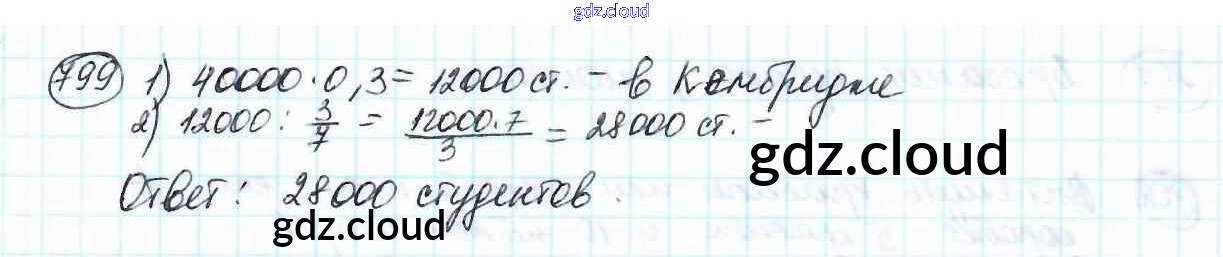 gdz.cloud
799 1) 40000 · 0,3 = 12000 ст. - в Кембридже
2) 12000 : 3/7 = 12000·7/3 = 28000 ст. -
gdz.cloud
Ответ: 28000 студентов.
gdz.cloud